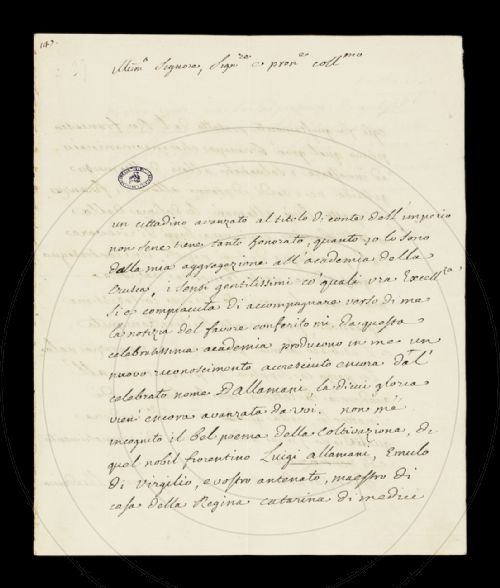 147.
Illum.ª Signore, Sign.re e pron.e coll.mo
un cittadino avanzato al titolo di conte dall'imperio
non sene tiene tanto honorato, quanto jo lo sono
dalla mia aggregazione all'academia della
Crusca, i sensi gentilissimi co'quali vra Excell.za
si è compiaciuta di accompagnare verso di me
la notizia del favore conferitomi da questa
celebratissima academia producono in me un
nuovo riconoscimento accresciuto encora dal'
celebrato nome D'allamani, la di cui gloria
vien encora avanzata da voi. non m'é
incognito il bel poema della Coltivazione, di
quel nobil fiorentino Luigi allamani, Emulo
di Virgilio, e vostro antenato, maestro di
casa della Regina catarina di medici